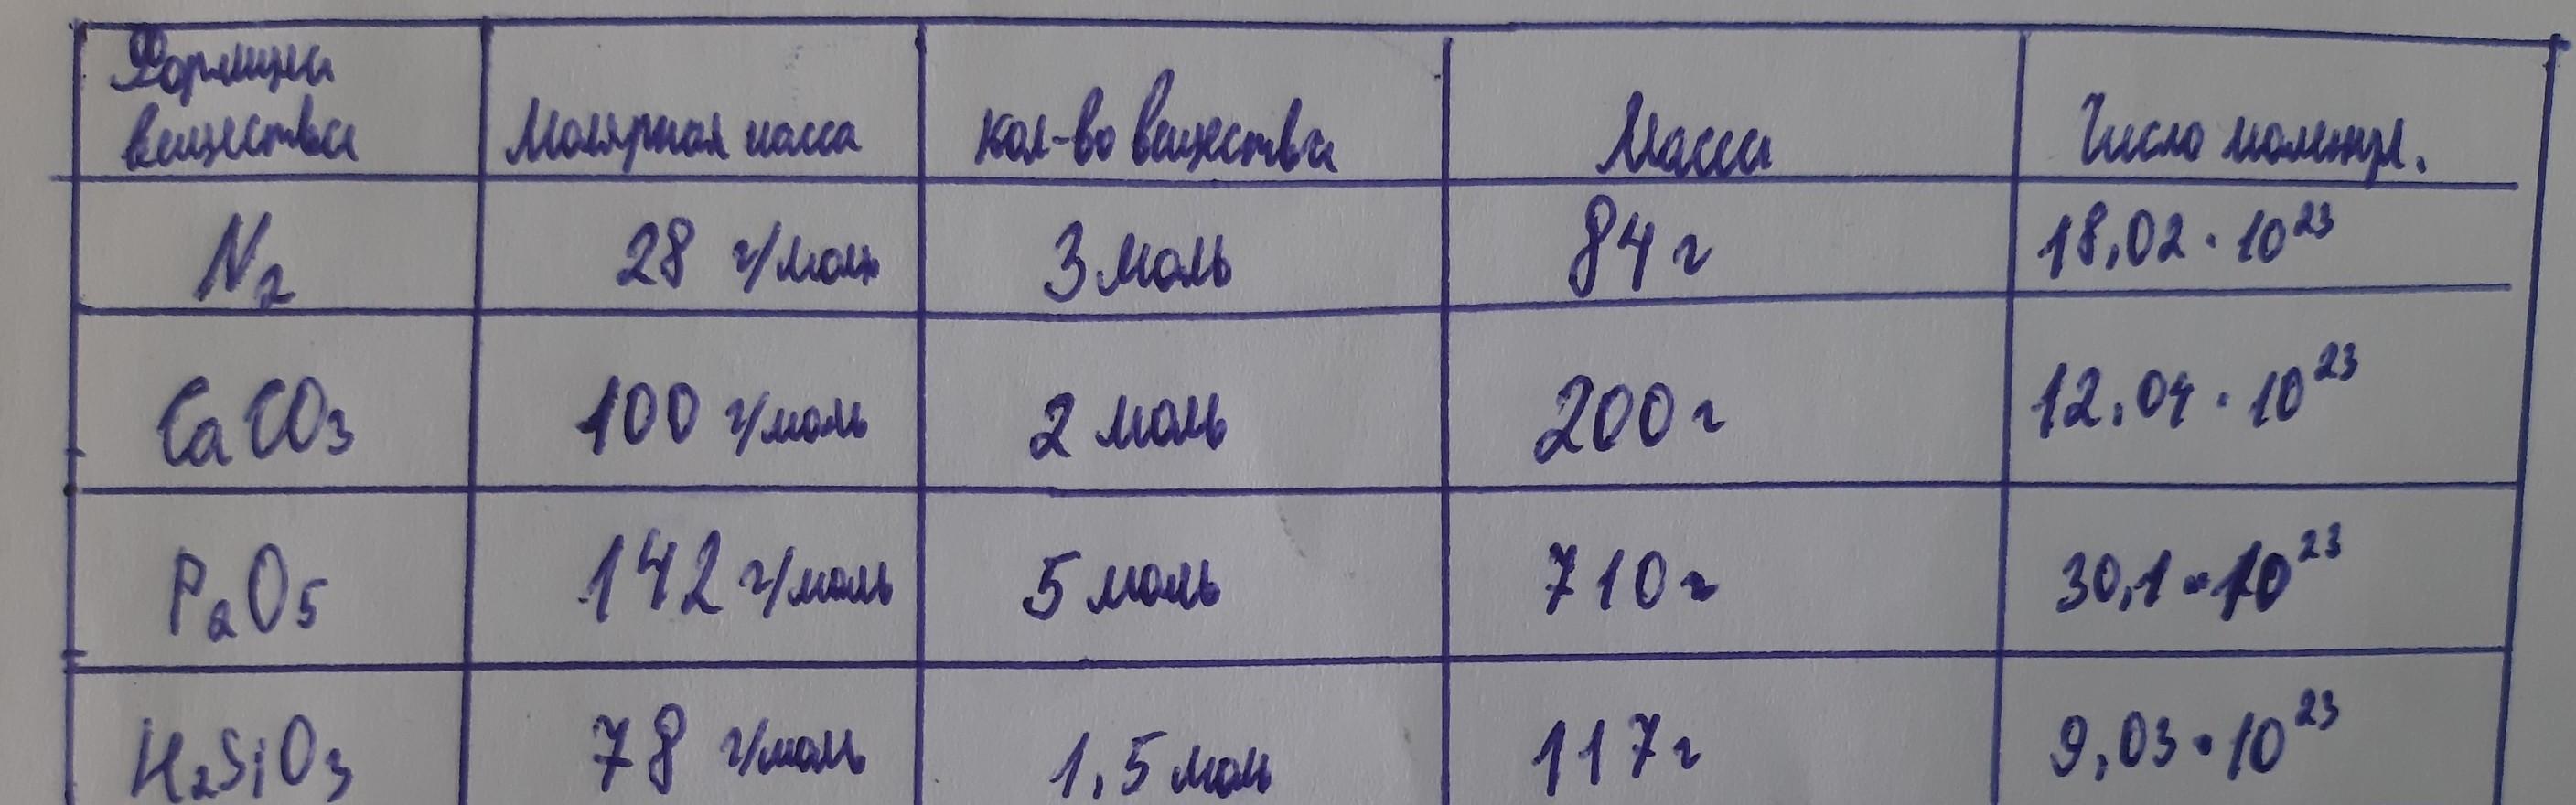 Формула
вещества Молярная масса кол-во вещества Масса Число молекул.
N2 28 г/моль 3 моль 84 г 18,02 · 10^23
CaCO3 100 г/моль 2 моль 200 г 12,04 · 10^23
P2O5 142 г/моль 5 моль 710 г 30,1 · 10^23
H2SiO3 78 г/моль 1,5 моль 117 г 9,03 · 10^23